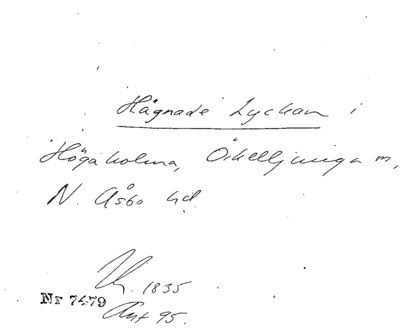 Hägnade Lyckan i
Högaholma, Örkelljunga m,
N. Åsbo hd.
1835
Nr 7479
Ant 95.